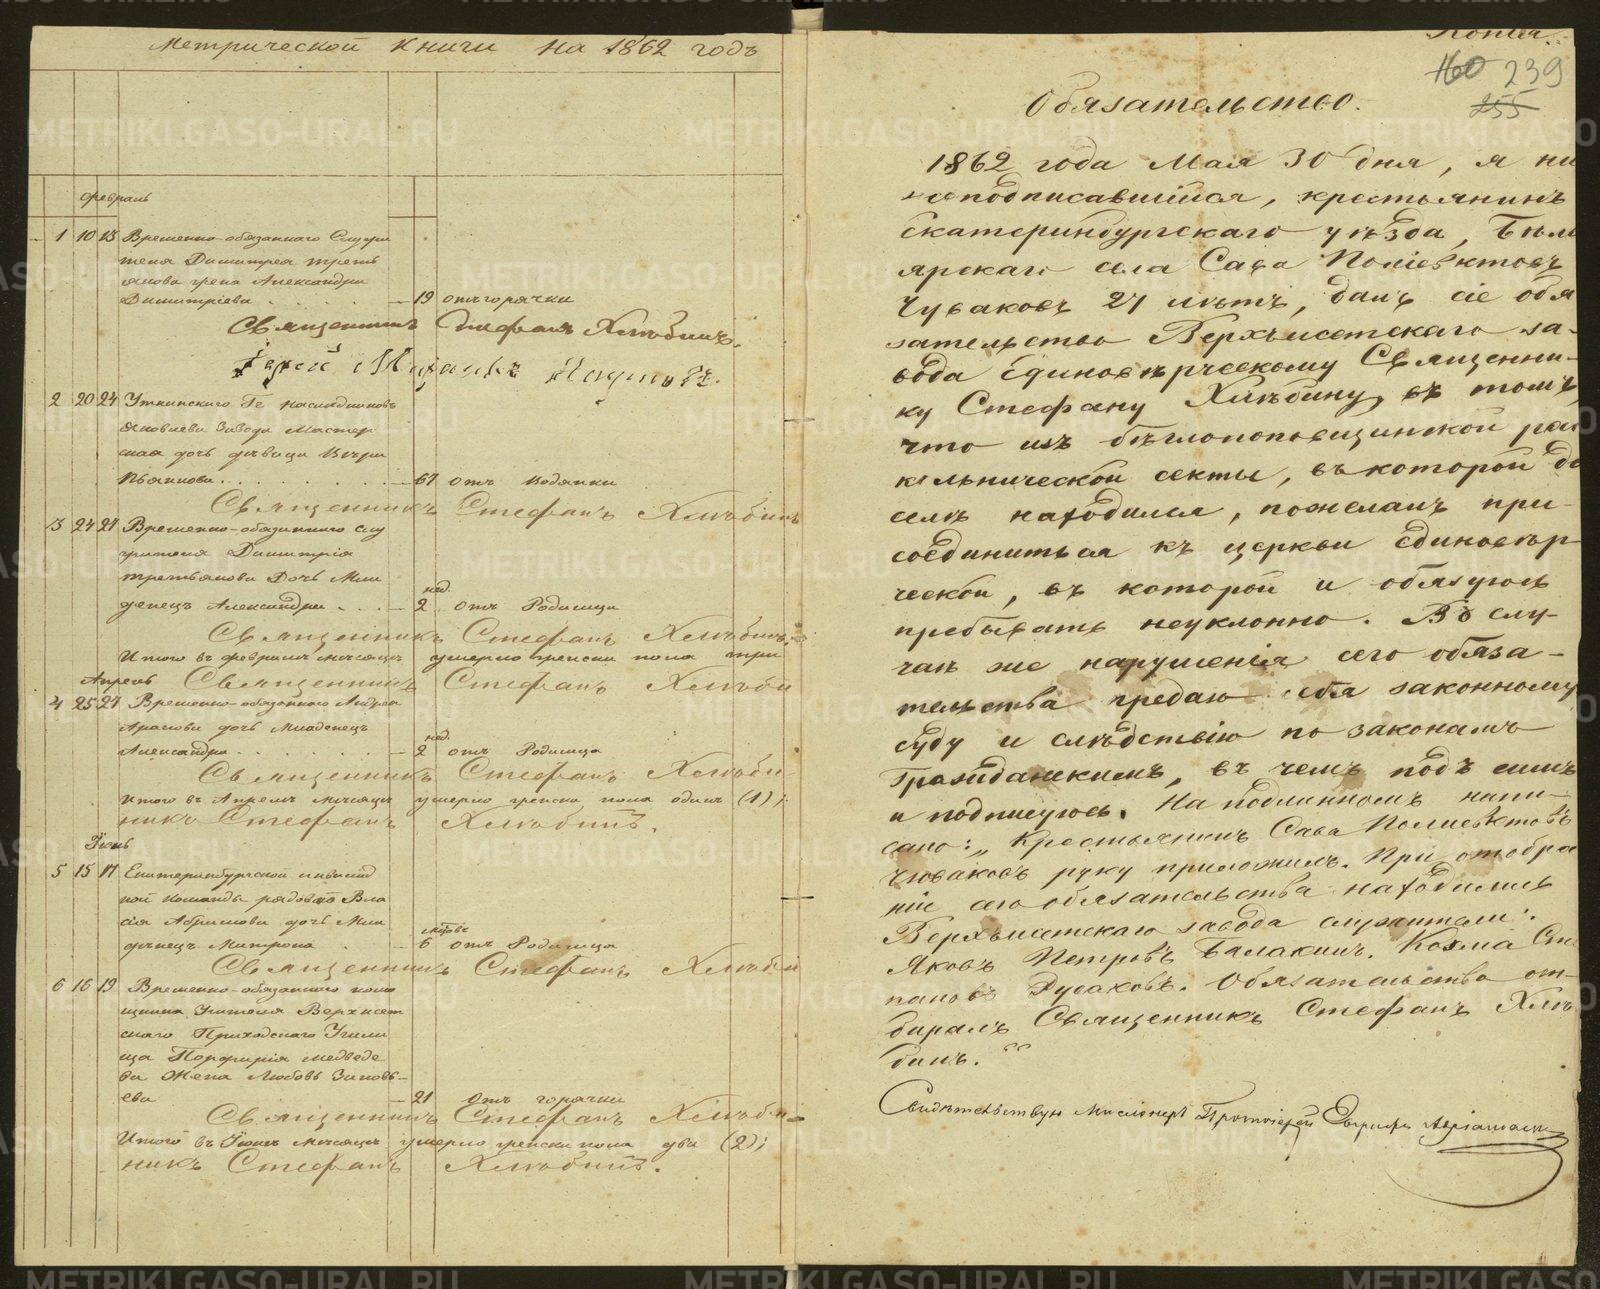 Метрической книги на 1862 годъ
Февраль
1 10 13 Временно-обязаннаго Служи
теля Димитрія Треть
якова жена Александра
Димитріева . . . . . 19 отъ горячки
Священникъ Стефанъ Хлѣбинъ.
Іерей
2 20 24 Уткинскаго Гг наслѣдниковъ
Яковлева завода Мастер
ская дочь дѣвица Вѣра
Пьянкова . . . . . 67 отъ водянки
Священникъ Стефанъ Хлѣбинъ
3 24 27 Временно-обязаннаго слу
жителя Димитрія
Третьякова Дочь Мла
денецъ Александра . . . 2 нед. отъ Родимца
Священникъ Стефанъ Хлѣбинъ.
Итого въ февралѣ мѣсяцѣ умерло женска пола три
Священникъ Стефанъ Хлѣби
Апрель
4 25 27 Временно-обязаннаго Андрея
Арапова дочь младенецъ
Александра . . . . . 2 нед. отъ Родимца
Священникъ Стефанъ Хлѣби
Итого въ Апрелѣ мѣсяцѣ умерло женска пола одинъ (1);
никъ Стефанъ Хлѣбинъ.
Іюнь
5 15 17 Екатеринбургской инвалид
ной команды рядового Вла
сія Абрамова дочь Мла
денецъ Матрона . . 6 отъ Родимца
Священникъ Стефанъ Хлѣби
6 16 19 Временно-обязаннаго помо
щника Учителя Верхисет
скаго Приходскаго Учили
ща Порфирія Медведе
ва Жена Любовь Зиновь-
ева 21 Отъ горячки
Священникъ Стефанъ Хлѣби
Итого въ Іюнѣ мѣсяцѣ умерло женска пола два (2);
никъ Стефанъ Хлѣбинъ.
Копія.
160 239
255
Обязательство.
1862 года Мая 30 дня, я ни
жеподписавшійся, крестьянинъ
Екатеринбургскаго уѣзда, Бѣло
ярскаго села Сава Поліевктовъ
Чуваковъ 27 лѣтъ, далъ сіе обя
зательство Верхъисетскаго за-
вода Единовѣрческому Священни-
ку Стефану Хлѣбину, въ томъ,
что изъ бѣглопоповщинской рас
кольнической секты, въ которой до
селѣ находился, пожелалъ при-
соединиться къ церкви Единовѣр-
ческой, въ которой и обязуюсь
пребывать неуклонно. Въ слу-
чаѣ же нарушенія сего обяза-
тельства предаю себя законному
суду и слѣдствію по законамъ
Гражданскимъ, въ чемъ подъ симъ
и подписуюсь. На подлинномъ напи-
сано: „Крестьянинъ Сава Полиевктовъ
Чюваковъ руку приложилъ. При отобра
ніи сего обязательства находились
Верхъисетскаго завода служители:
Яковъ Петровъ Балакинъ. Козма Сте
пановъ Русаковъ. Обязательство от-
биралъ Священникъ Стефанъ Хлѣ
бинъ.“
Свидѣтельствую Миссіонеръ Протоіерей